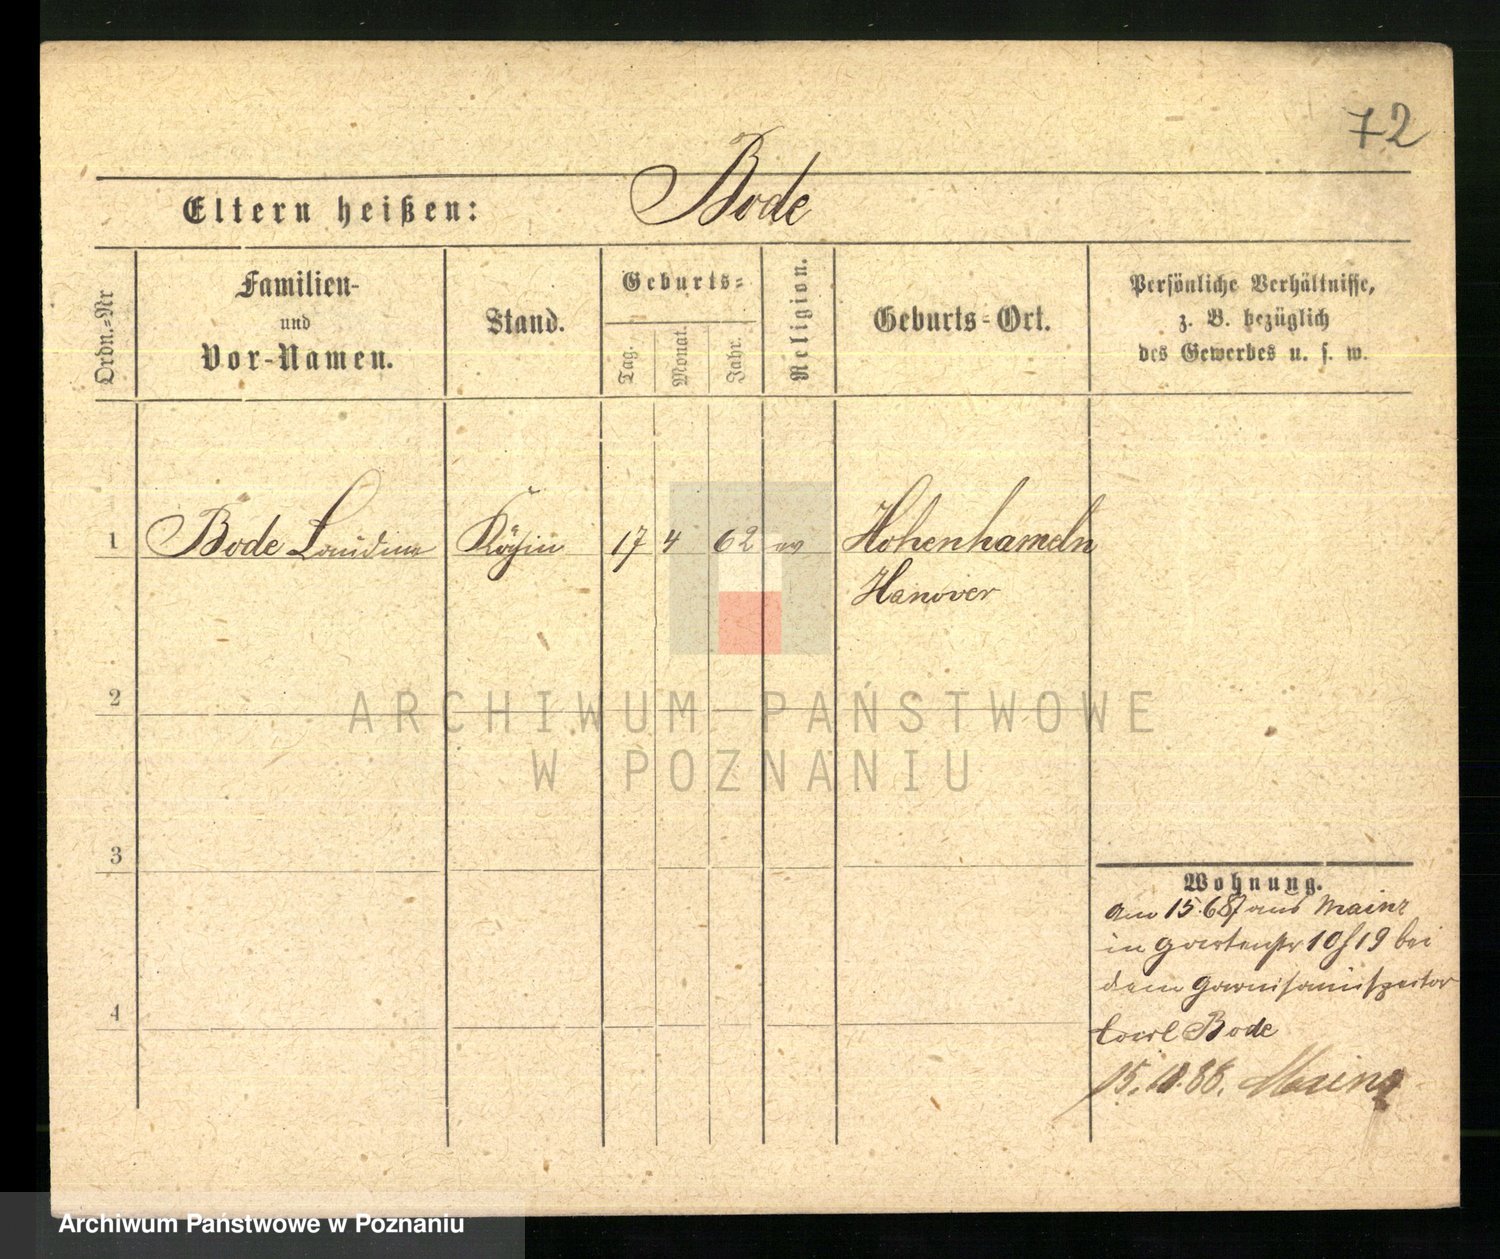 72
Eltern heißen: Bode
Ordn.=Nr
Familien-
und
Vor-Namen.
Stand.
Geburts=
Tag.
Monat.
Jahr.
Religion.
Geburts=Ort.
Persönliche Verhältnisse,
z. B. bezüglich
des Gewerbes u. s. w.
1 Bode Köchin 17 4 62 ev Hohenhameln
Hanover
2
ARCHIWUM PAŃSTWOWE
W POZNANIU
3
Wohnung.
am 15.6 87 aus Mainz
in Gartenstr 10 19 bei
dem Garnisoninspector
4
Carl Bode
Mainz
Archiwum Państwowe w Poznaniu